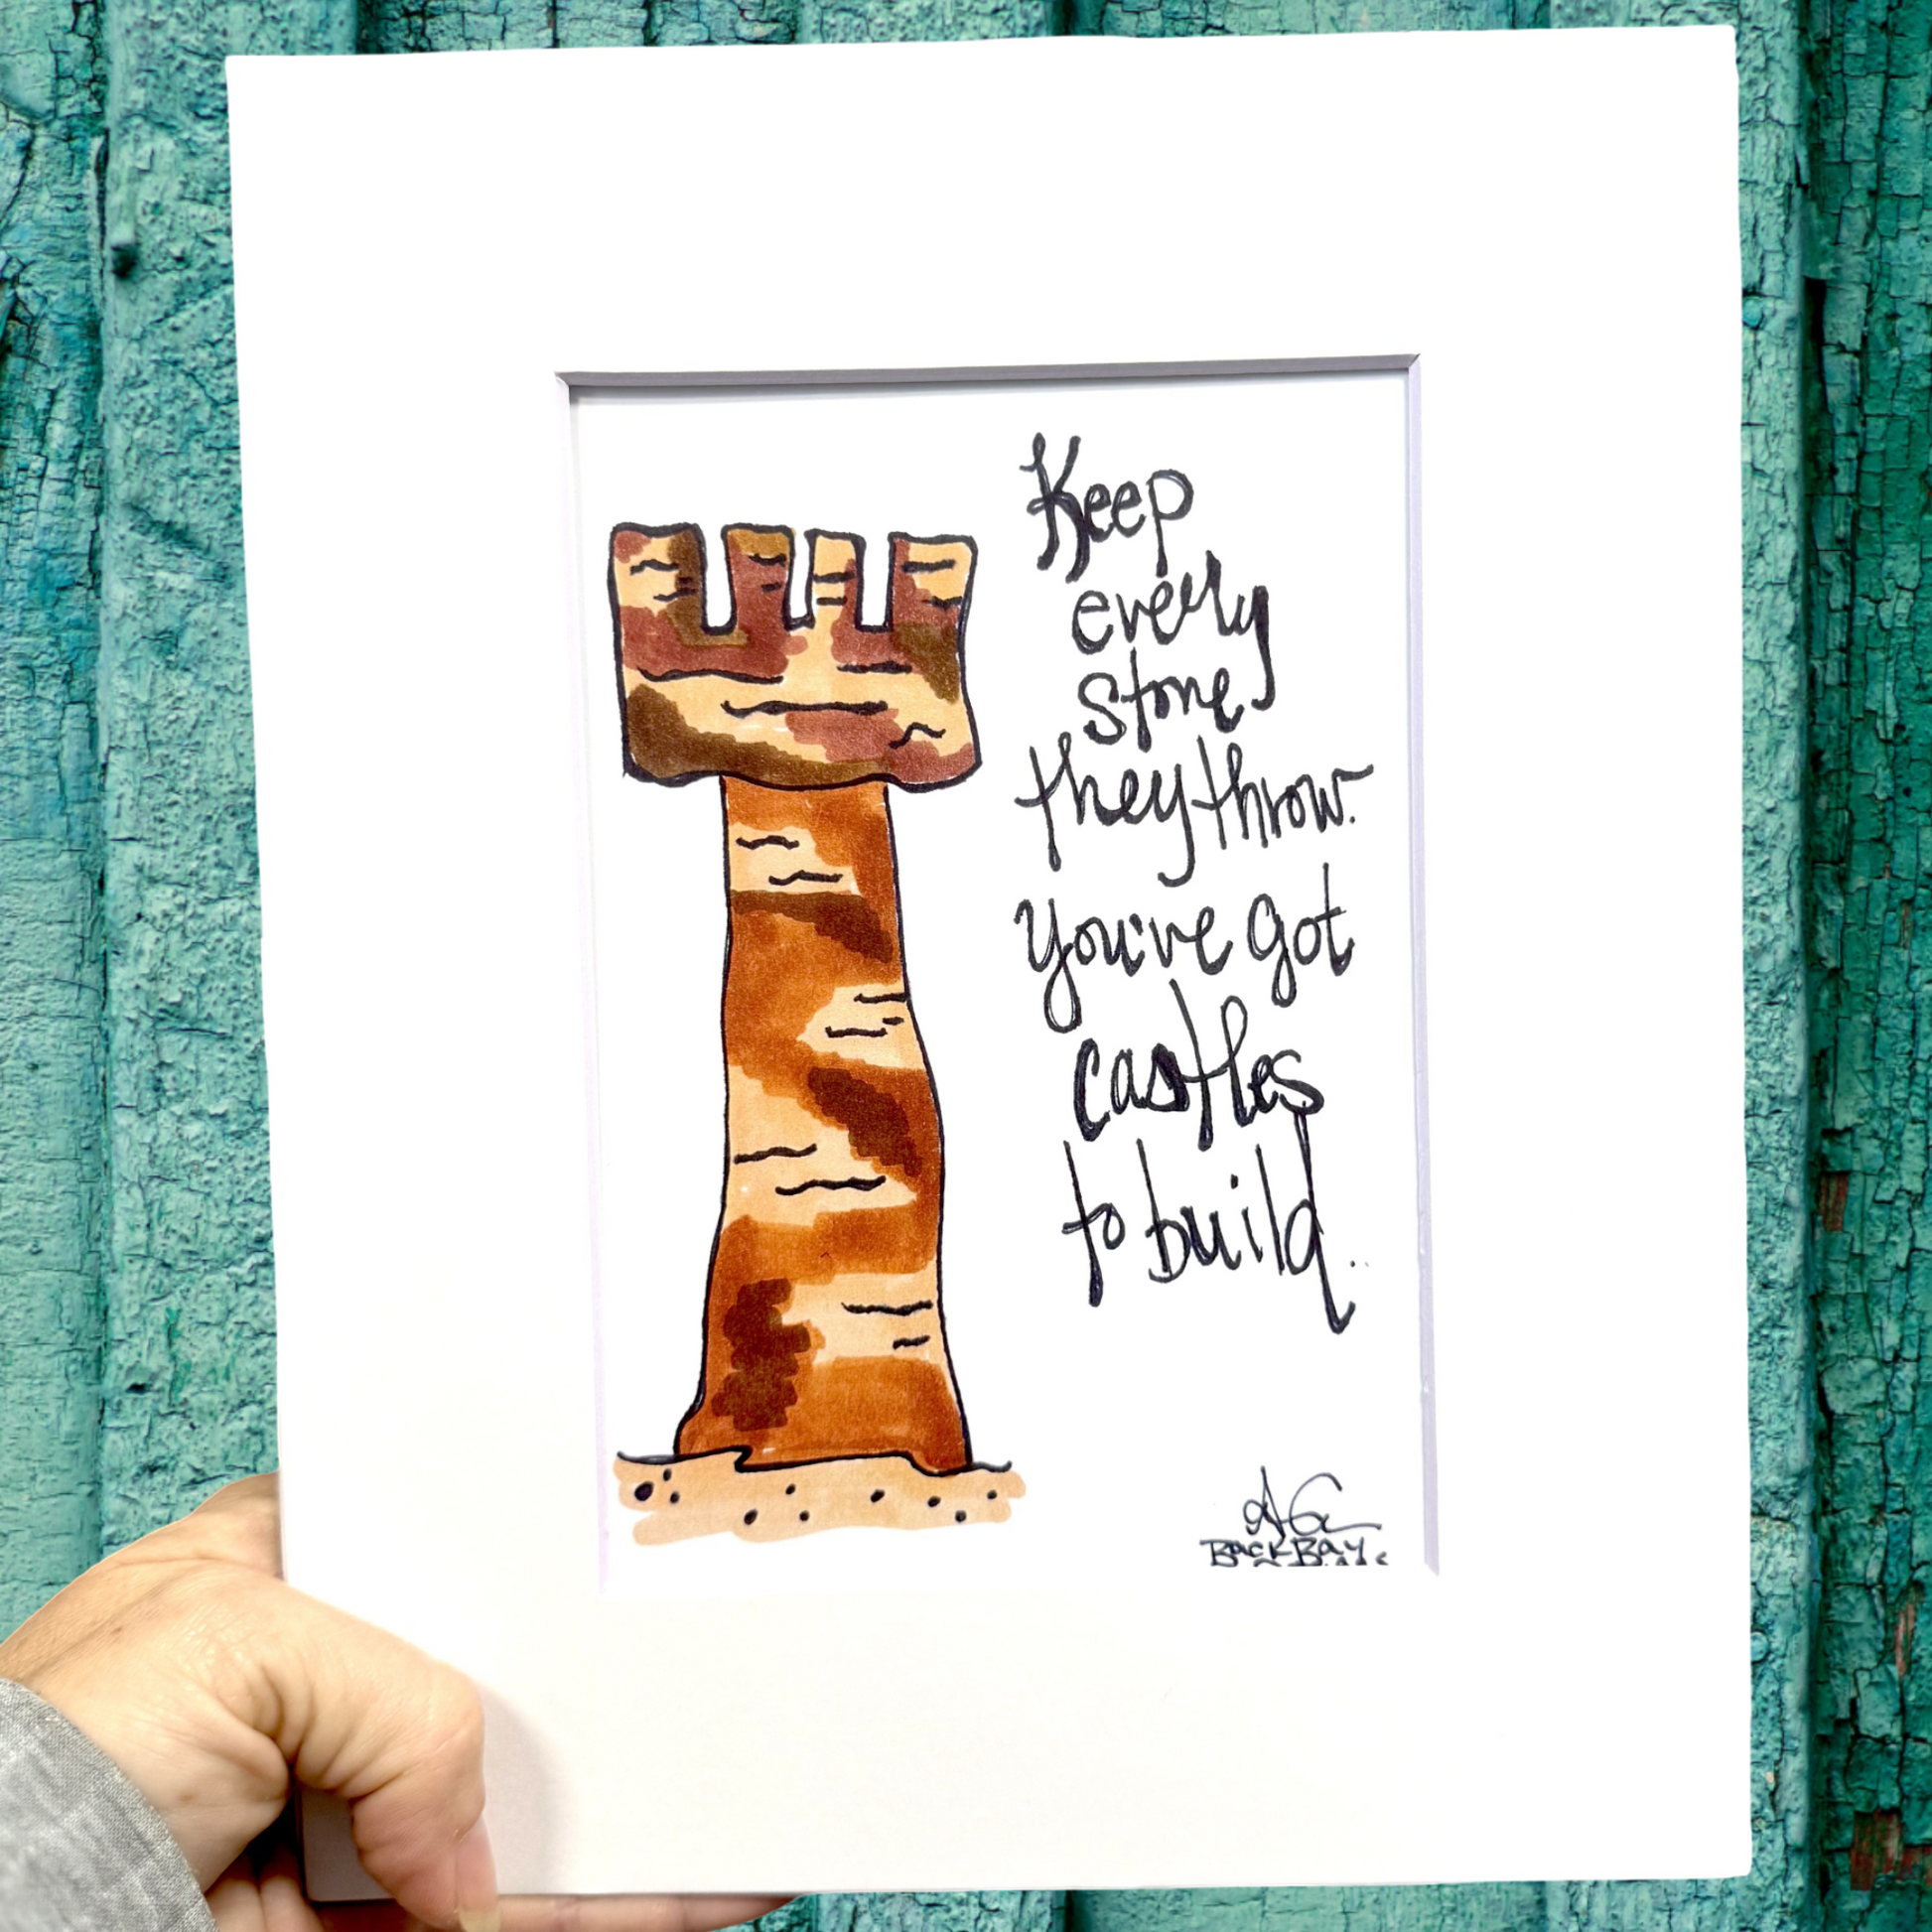 Keep
every
stone
they throw.
You've got
castles
to build.
AG
BackBay